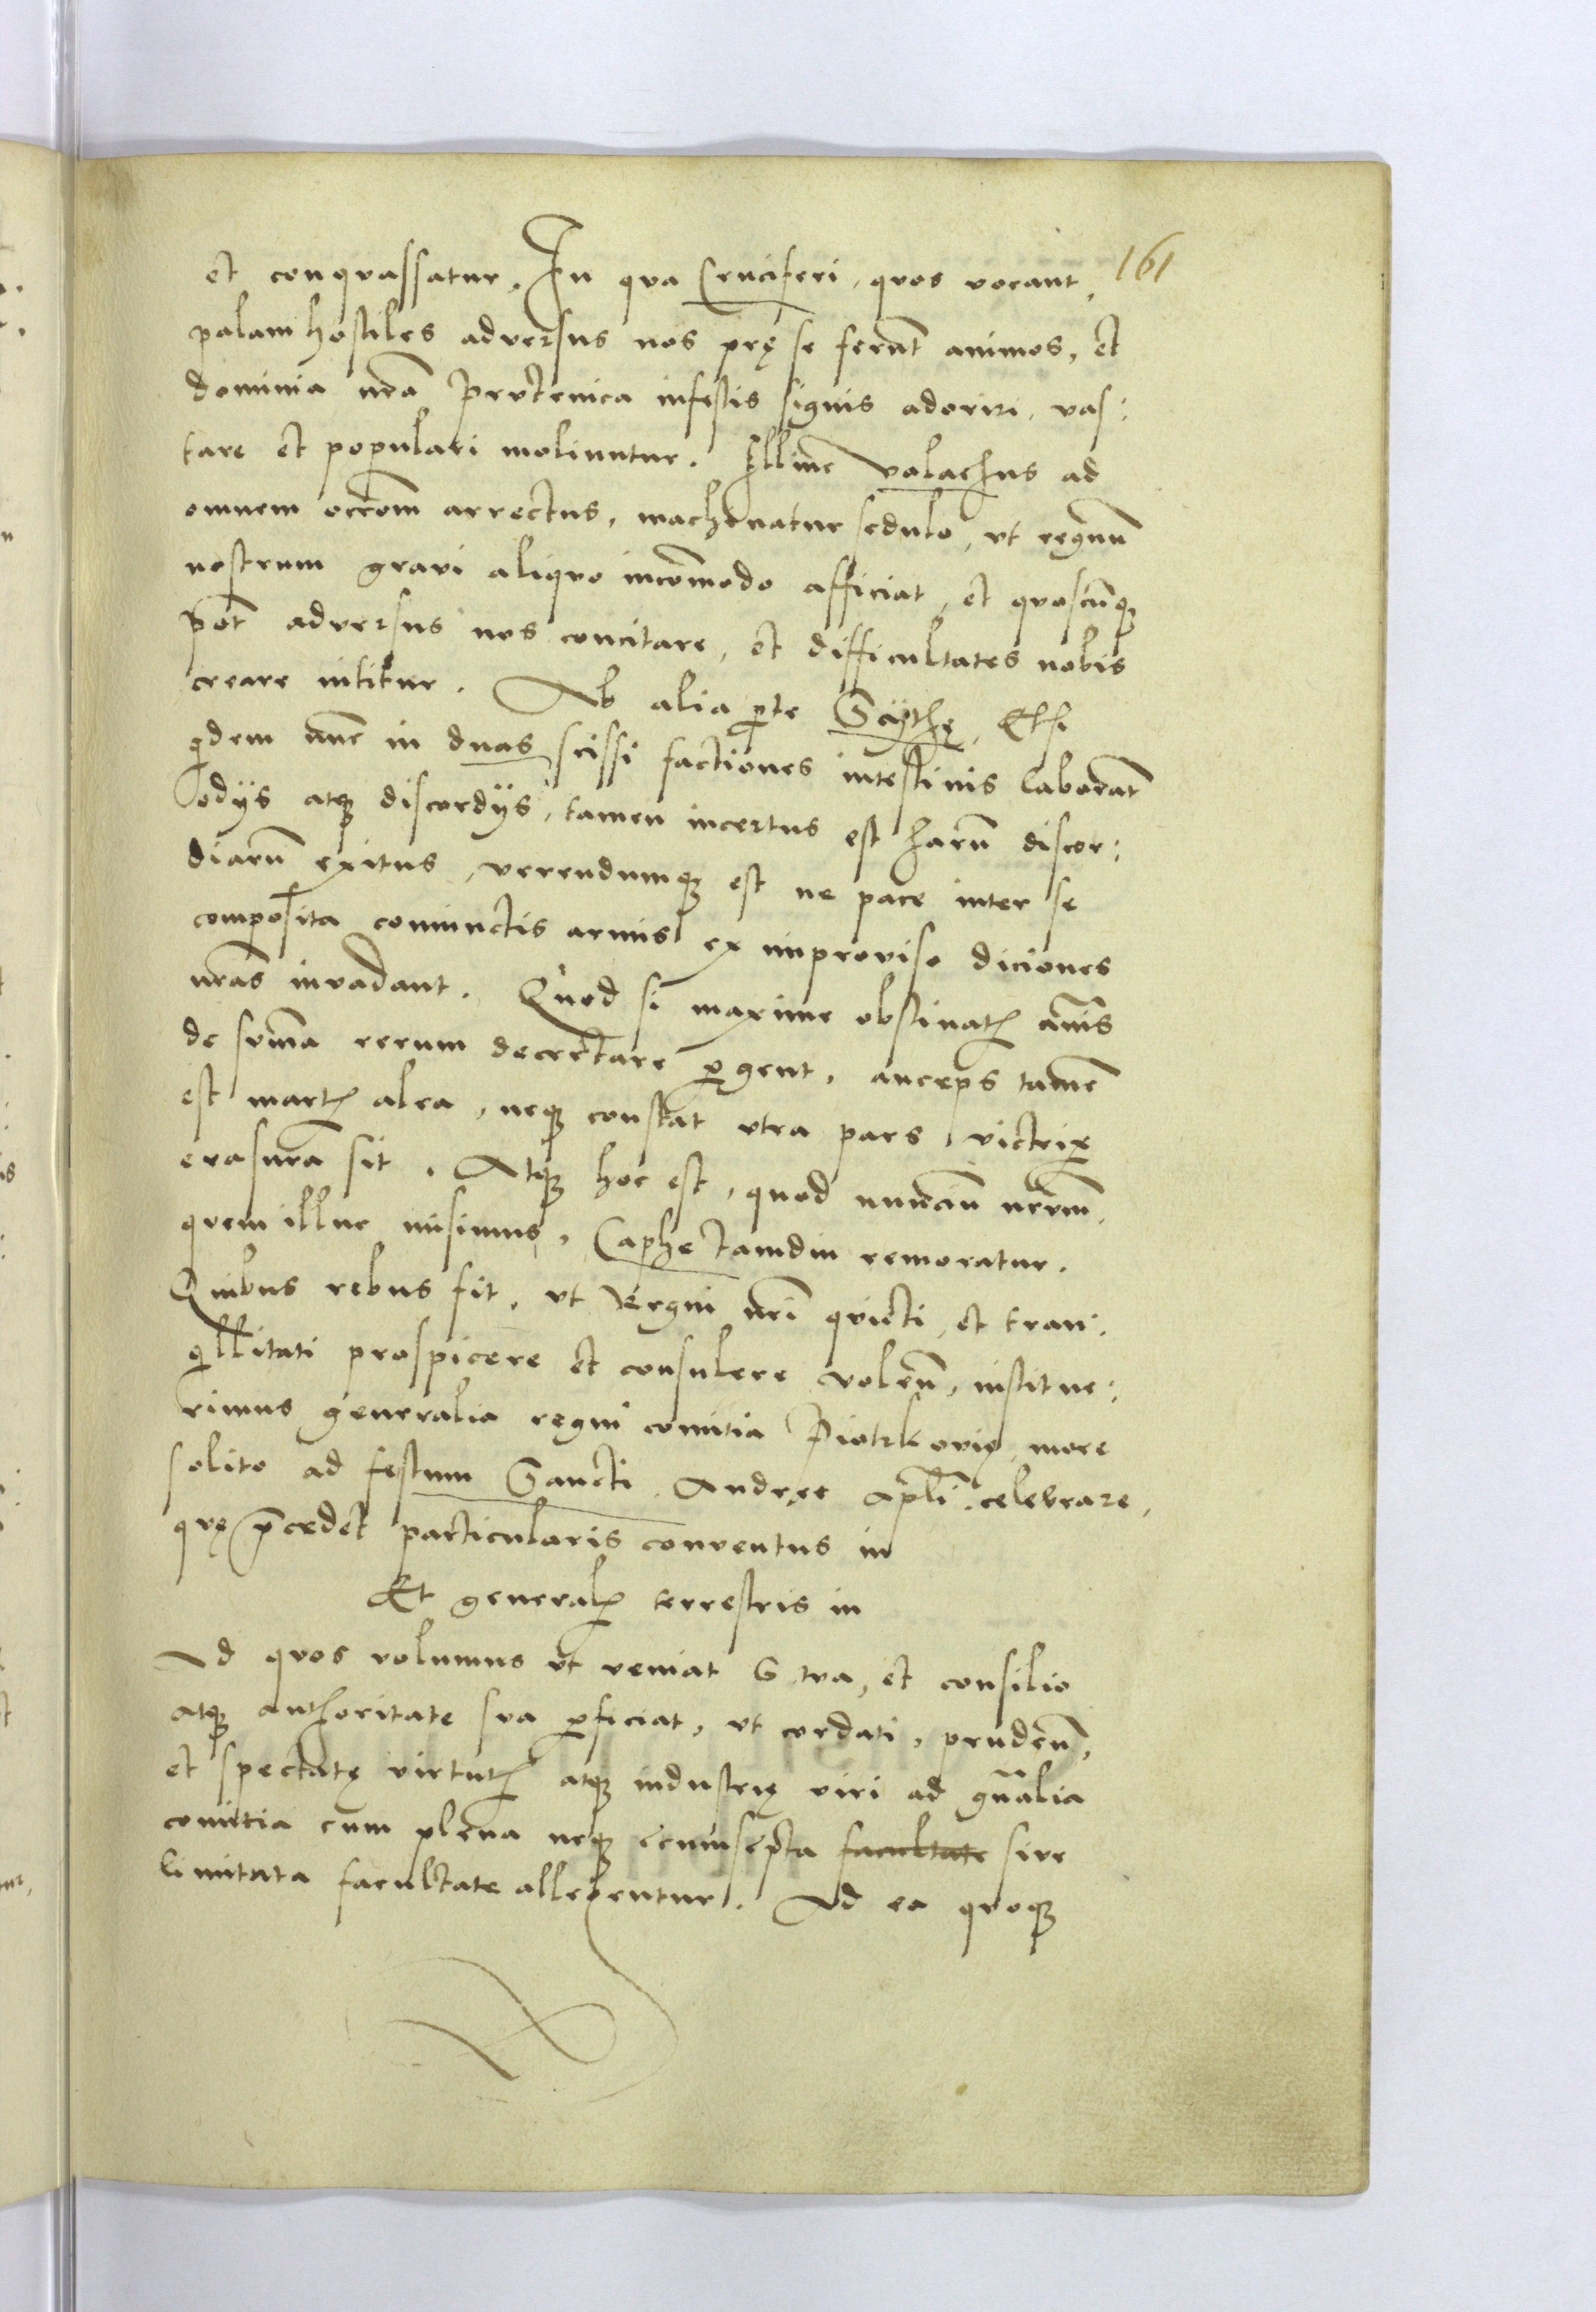 161
et conquassatur. In qua Cruciferi, quos vocant,
palam hostiles adversus nos prę se ferunt animos, et
dominia nrã Prutenica infestis signis adoriri, vas:
tare et populari moliuntur. Illinc Valachus ad
omnem occõm arrectus, machinatur sedulo, ut regnũ
nostrum gravi aliquo incõmodo afficiat, et quoscũq;
põt adversus nos concitare, et difficultates nobis
creare nititur. Ab alia pte Scÿthę, Etsi
qdem nũc in duas scissi factiones intestinis laborãt
odÿs atq; discordÿs, tamen incertus est harũ discor:
diarũ exitus, verendumq; est ne pace inter se
composita coniunctis armis ex improviso diciones
nrãs invadant. Quod si maxime obstinatis aĩs
de sũma rerum decertare pgent, anceps tamẽ
est martis alea, neq; constat utra pars victrix
evasura sit. Atq; hoc est, quod nunciũ nrũm,
quem illuc misimus, Caphe tamdiu remoratur.
Quibus rebus fit, ut Regni nrĩ quieti, et tran:
qllitati prospicere et consulere volen, institue:
rimus generalia regni comitia Piotrkovię, more
solito ad festum Sancti Andreę Apli celebrare,
quę pcedet particularis conventus in
Et generalis terrestris in
Ad quos volumus ut veniat G tua, et consilio
atq; authoritate sua pficiat, ut cordati, pruden,
et spectatę virtutis atq; industrię viri ad gñalia
comitia cum plena neq; circumsepta facultate sive
limitata facultate allegentur. Ad ea quoq;